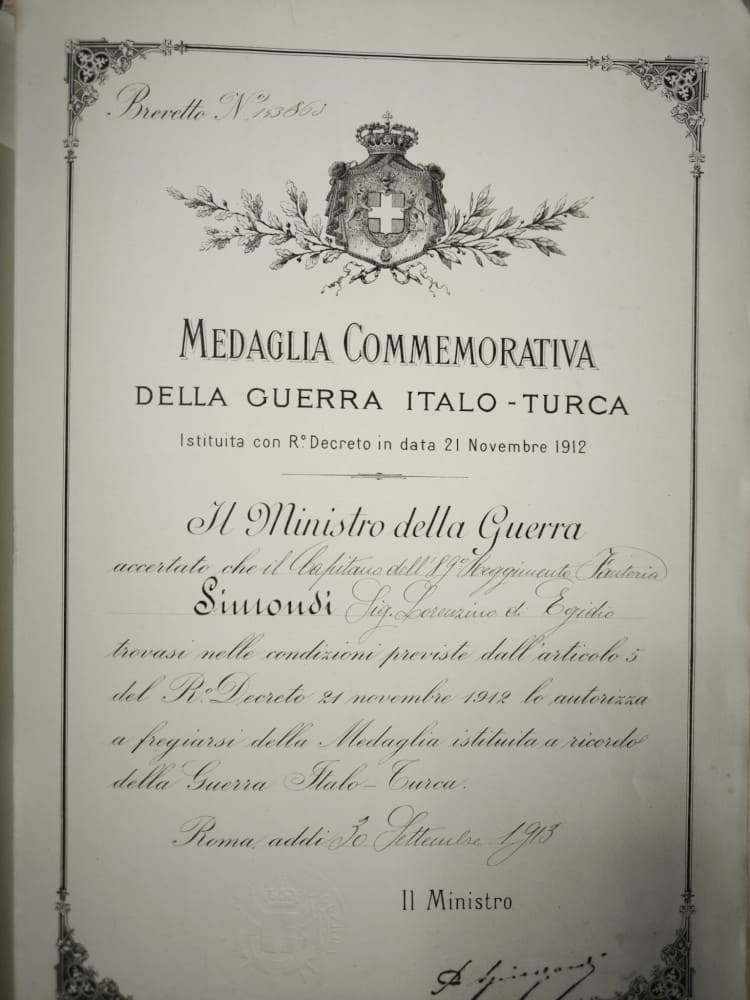 Brevetto N.º 153863
MEDAGLIA COMMEMORATIVA
DELLA GUERRA ITALO-TURCA
Istituita con R.º Decreto in data 21 Novembre 1912
Il Ministro della Guerra
accertato che il Capitano dell'89º Reggimento Fanteria
Simondi Sig. Lorenzino di Egidio
trovasi nelle condizioni previste dall'articolo 5
del R.º Decreto 21 novembre 1912 lo autorizza
a fregiarsi della Medaglia istituita a ricordo
della Guerra Italo-Turca.
Roma, addì 30 Settembre 1913
Il Ministro